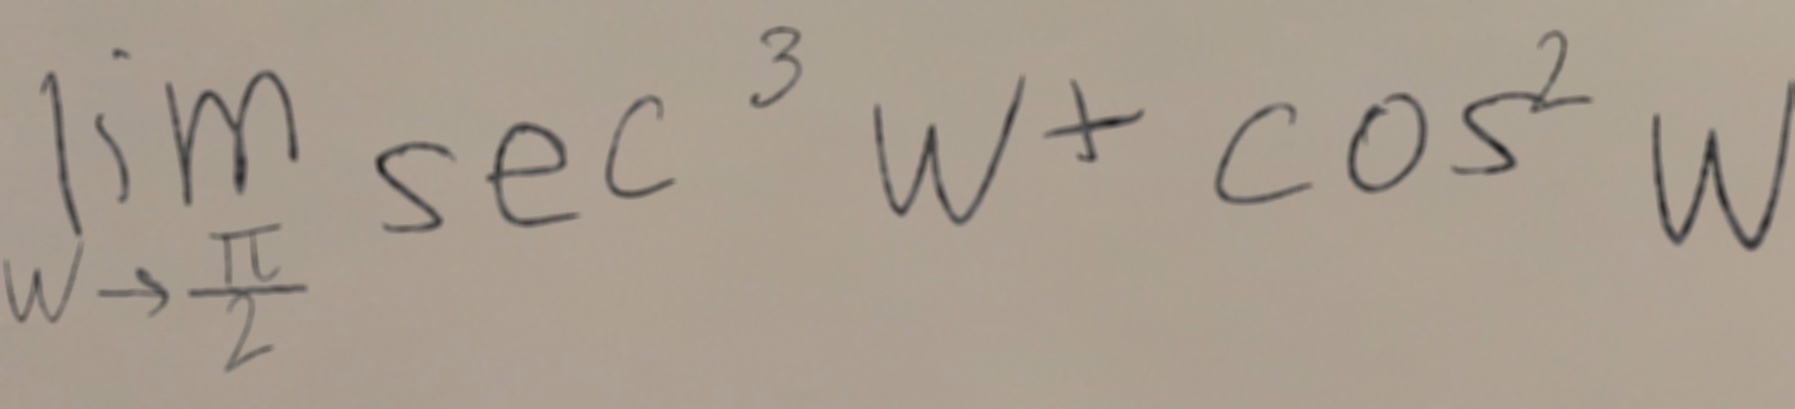 \lim_{w \to \frac{\pi}{2}} \sec^3 w + \cos^2 w